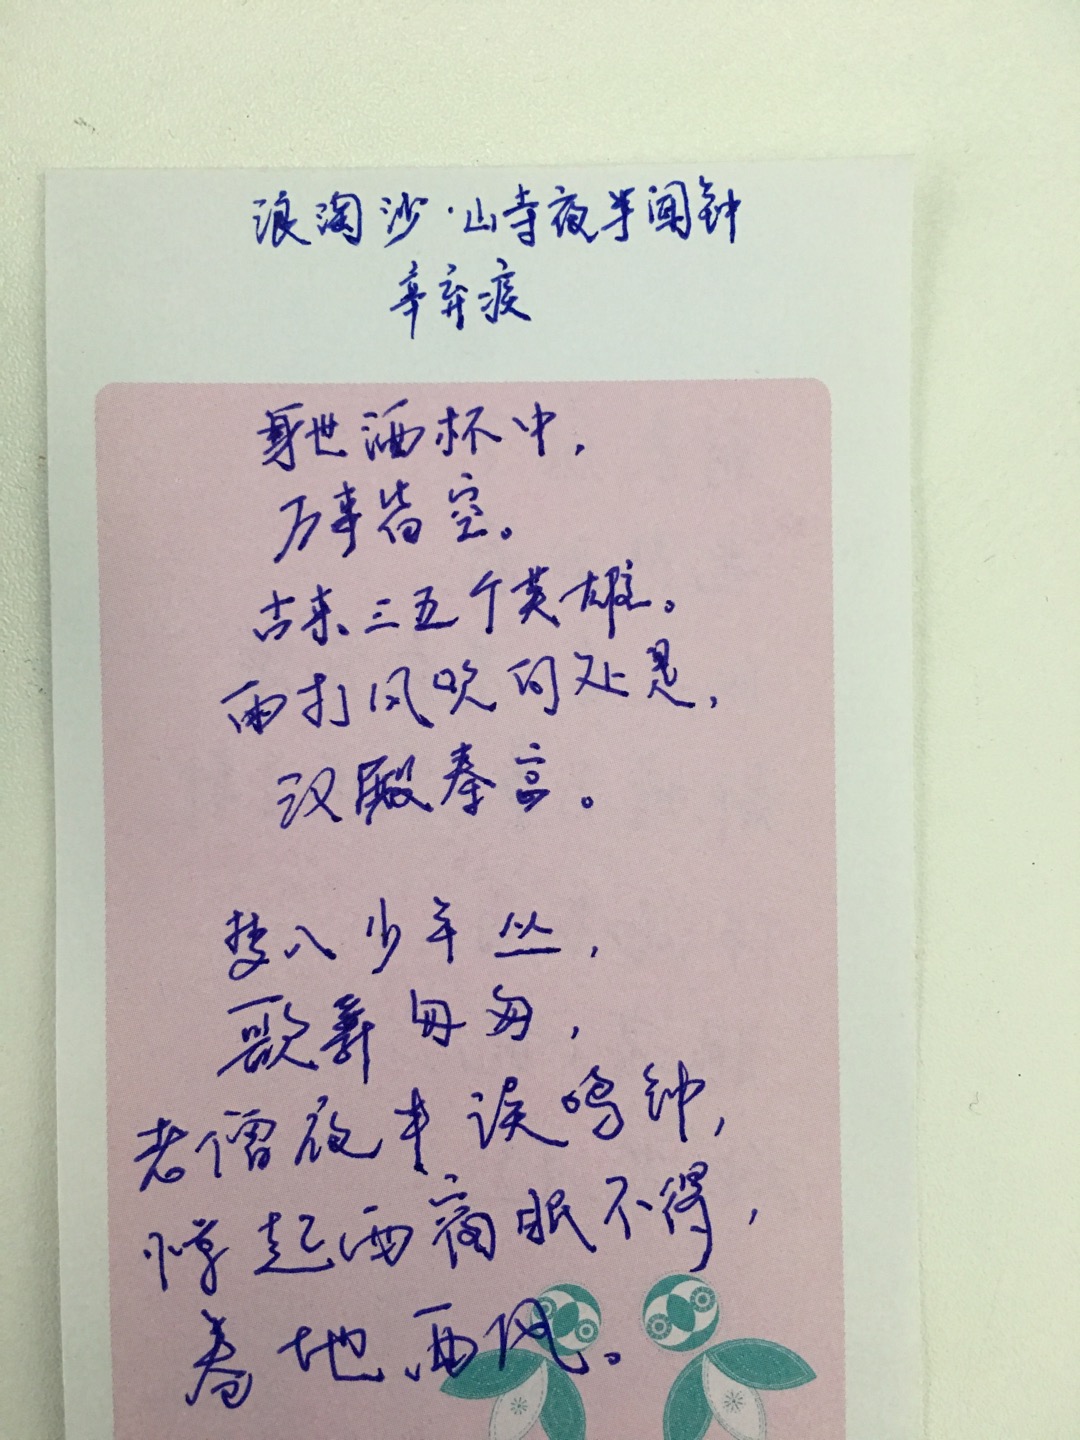 浪淘沙·山寺夜半闻钟
辛弃疾
身世酒杯中，
万事皆空。
古来三五个英雄。
雨打风吹何处是，
汉殿秦宫。
梦入少年丛，
歌舞匆匆，
老僧夜半误鸣钟，
惊起西窗眠不得，
卷地西风。